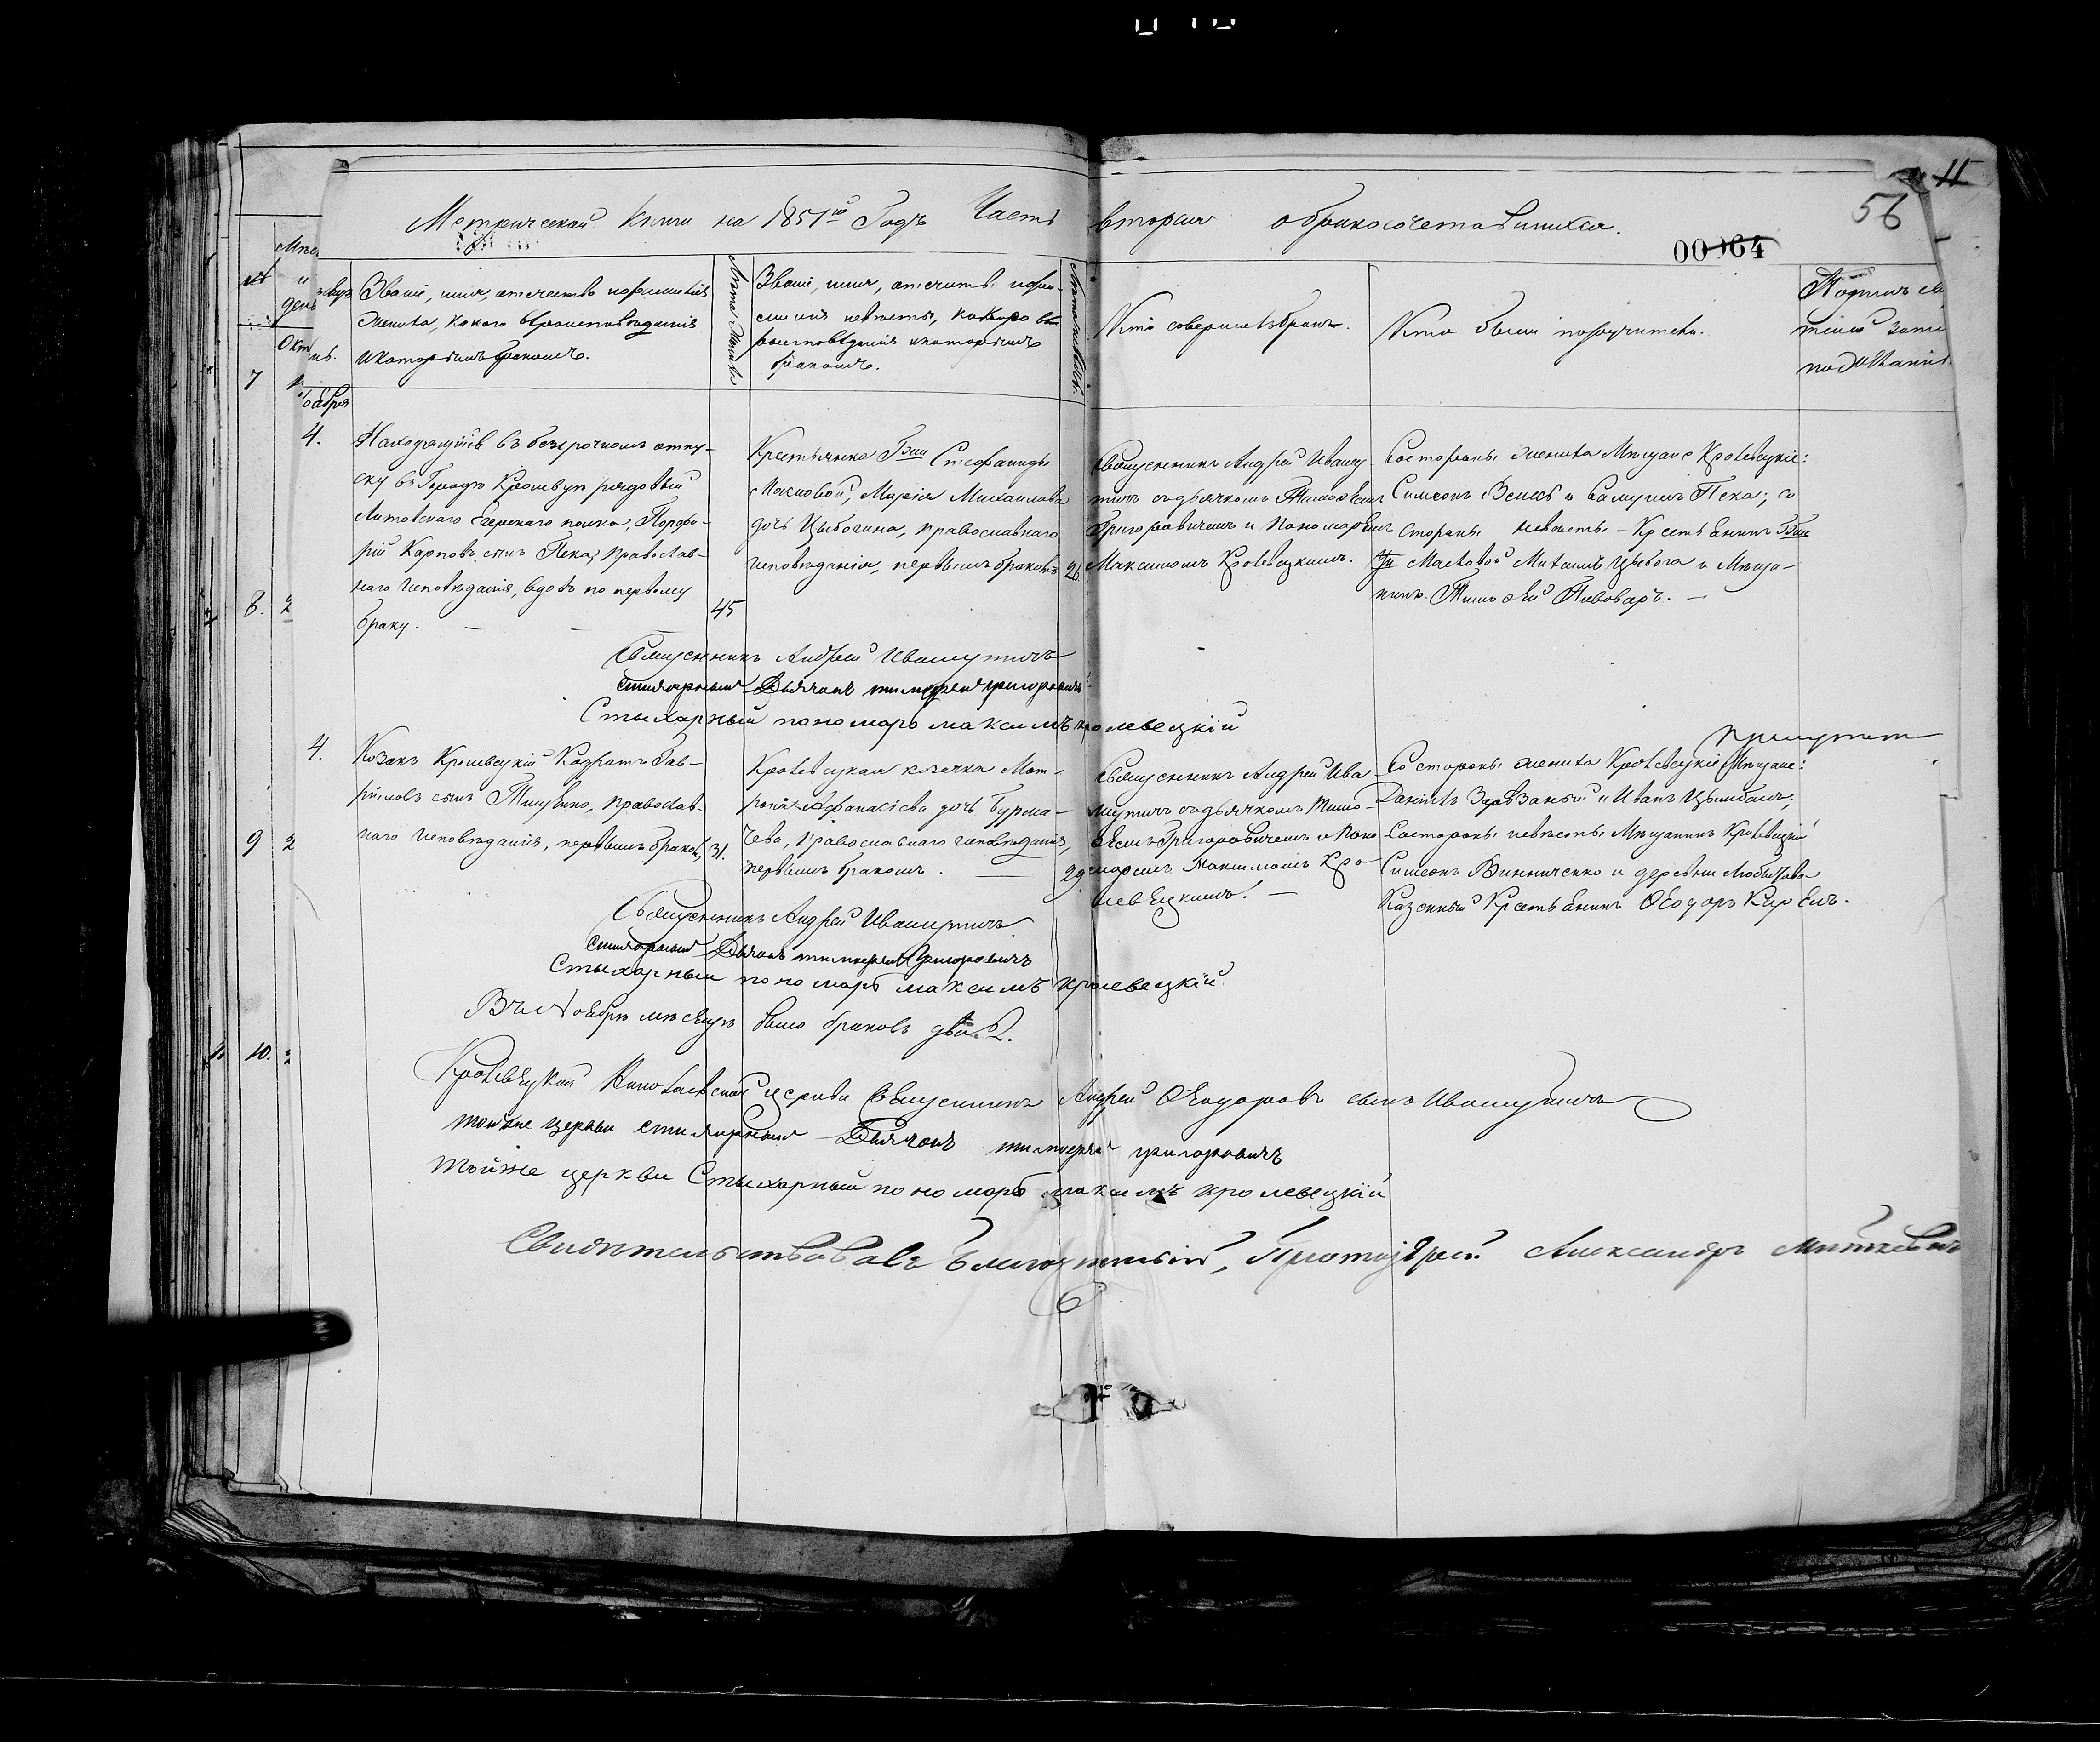 11
56
00064
Метрической Книги на 1851й Годъ Часть вторая о бракосочетавшихся.
Званіе, имя, отечество и фамилія
жениха, какого вѣроисповѣданія
и которымъ бракомъ.
Лѣта жениха
Званіе, имя, отечество и фами-
лія невѣсты, какого вѣ
роисповѣданія и которымъ
бракомъ.
Лѣта невѣсты.
Кто совершалъ бракъ.
Кто были поручители.
Ноября
4.
Находящійся въ безсрочномъ отпу-
ску въ Городѣ Кролевцѣ рядовый
Литовскаго Егерскаго полка, Порфи-
рій Карповъ сынъ Пека, православ-
наго исповѣданія, вдовъ по первому
браку.
45
Крестьянка Гжи Стефаниды
Маковой, Марія Михаилова
дочь Цыбогина, православнаго
исповѣданія, первымъ бракомъ
20.
Священникъ Андрей Ивашу
тичъ съ дьячкомъ Тимоѳеемъ
Григоровичемъ и Пономаремъ
Максимомъ Кролевецкимъ.
Со стороны жениха Мѣщане Кролевецкіе:
Симеонъ Венесъ и Самуилъ Пека; со
Стороны невѣсты - Крестьянинъ Гжи
Маковой Михаилъ Цыбога и Мѣща-
нинъ Тимоѳей Пивоваръ.
Священникъ Андрей Ивашутичъ
стихарный Дьячокъ тимоѳей григоровичъ
Стыхарный пономарь максимъ кролевецкій
4.
Козакъ Кролевецкій Кодратъ Гав-
риловъ сынъ Тишенко, православ-
наго исповѣданія, первымъ бракомъ,
31.
Кролевецкая козачка Мат-
рона Афанасіева дочь Бурма-
чева, православнаго исповѣданія,
первымъ бракомъ.
29
Священникъ Андрей Ива
шутичъ съ дьячкомъ Тимо-
ѳеемъ Григоровичемъ и Поно
маремъ Максимомъ Кро
левецкимъ.
Со стороны жениха Кролевецкіе Мѣщане:
Даніилъ Заввзаный и Иванъ Цымбалъ;
Со стороны невѣсты Мѣщанинъ Кролевецкій
Симеонъ Винниченко и деревни Любитова
Казенный Крестьянинъ Ѳеодоръ
Священникъ Андрей Ивашутичъ
стихарный Дьячокъ тимоѳей Григоровичъ
Стыхарный пономарь максимъ кролевецкій
Въ Ноябрѣ мѣсяцѣ было браковъ два 2.
Кролевецкой Николаевской церкви Священникъ Андрей Ѳеодоровъ сынъ Ивашутичъ
тойже церкви стихарный Дьячокъ тимоѳей григоровичъ
тойже церкви Стыхарный пономарь максимъ кролевецкій
Свидѣтельствовалъ Благочинный, Протоіерей Александръ